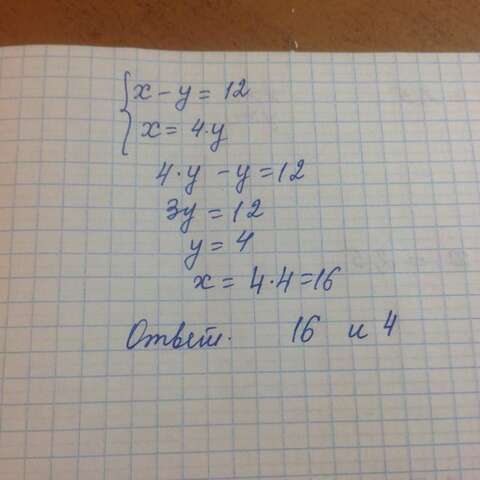 x - y = 12
x = 4·y
4·y - y = 12
3y = 12
y = 4
x = 4·4 = 16
Ответ. 16 и 4